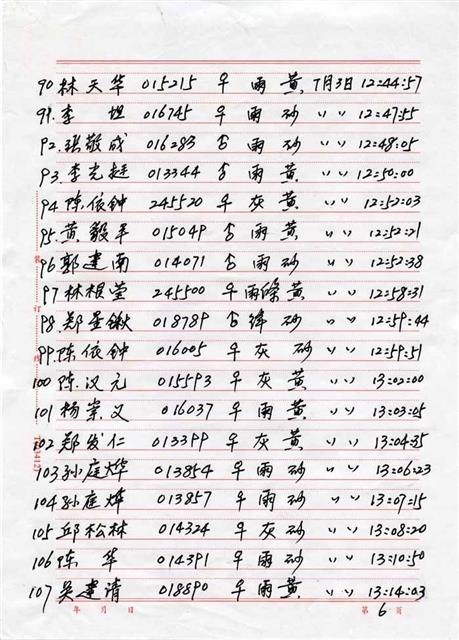 90 林天华 015215 早 雨 黄 7月3日 12:44:57
91. 李坦 016745 早 雨 砂 〃 12:47:55
92. 张敬成 016283 雨 砂 〃 12:48:05
93. 李光挺 013344 雨 黄 〃 12:50:00
94 陈依钟 245520 早 灰 黄 〃 12:52:03
95. 黄毅平 015049 雨 黄 〃 12:52:21
96 郭建南 014071 雨 砂 〃 12:52:38
97 林根莹 245500 早 雨 黄 〃 12:58:31
98. 郑星锹 018789 绛 砂 〃 12:59:44
99. 陈依钟 016005 早 灰 砂 〃 12:59:51
100 陈汉元 015593 早 灰 黄 〃 13:02:00
101 杨崇义 016037 早 雨 黄 〃 13:03:05
102 郑发仁 013399 早 灰 黄 〃 13:04:35
103 孙庭烨 013854 早 雨 砂 〃 13:06:23
104 孙庭烨 013857 早 雨 砂 〃 13:07:15
105 邱松林 014324 早 灰 砂 〃 13:08:20
106 陈华 014391 早 雨 砂 〃 13:10:50
107 吴建清 018890 早 雨 黄 〃 13:14:03
年 月 日 第 6 页
装
订
线